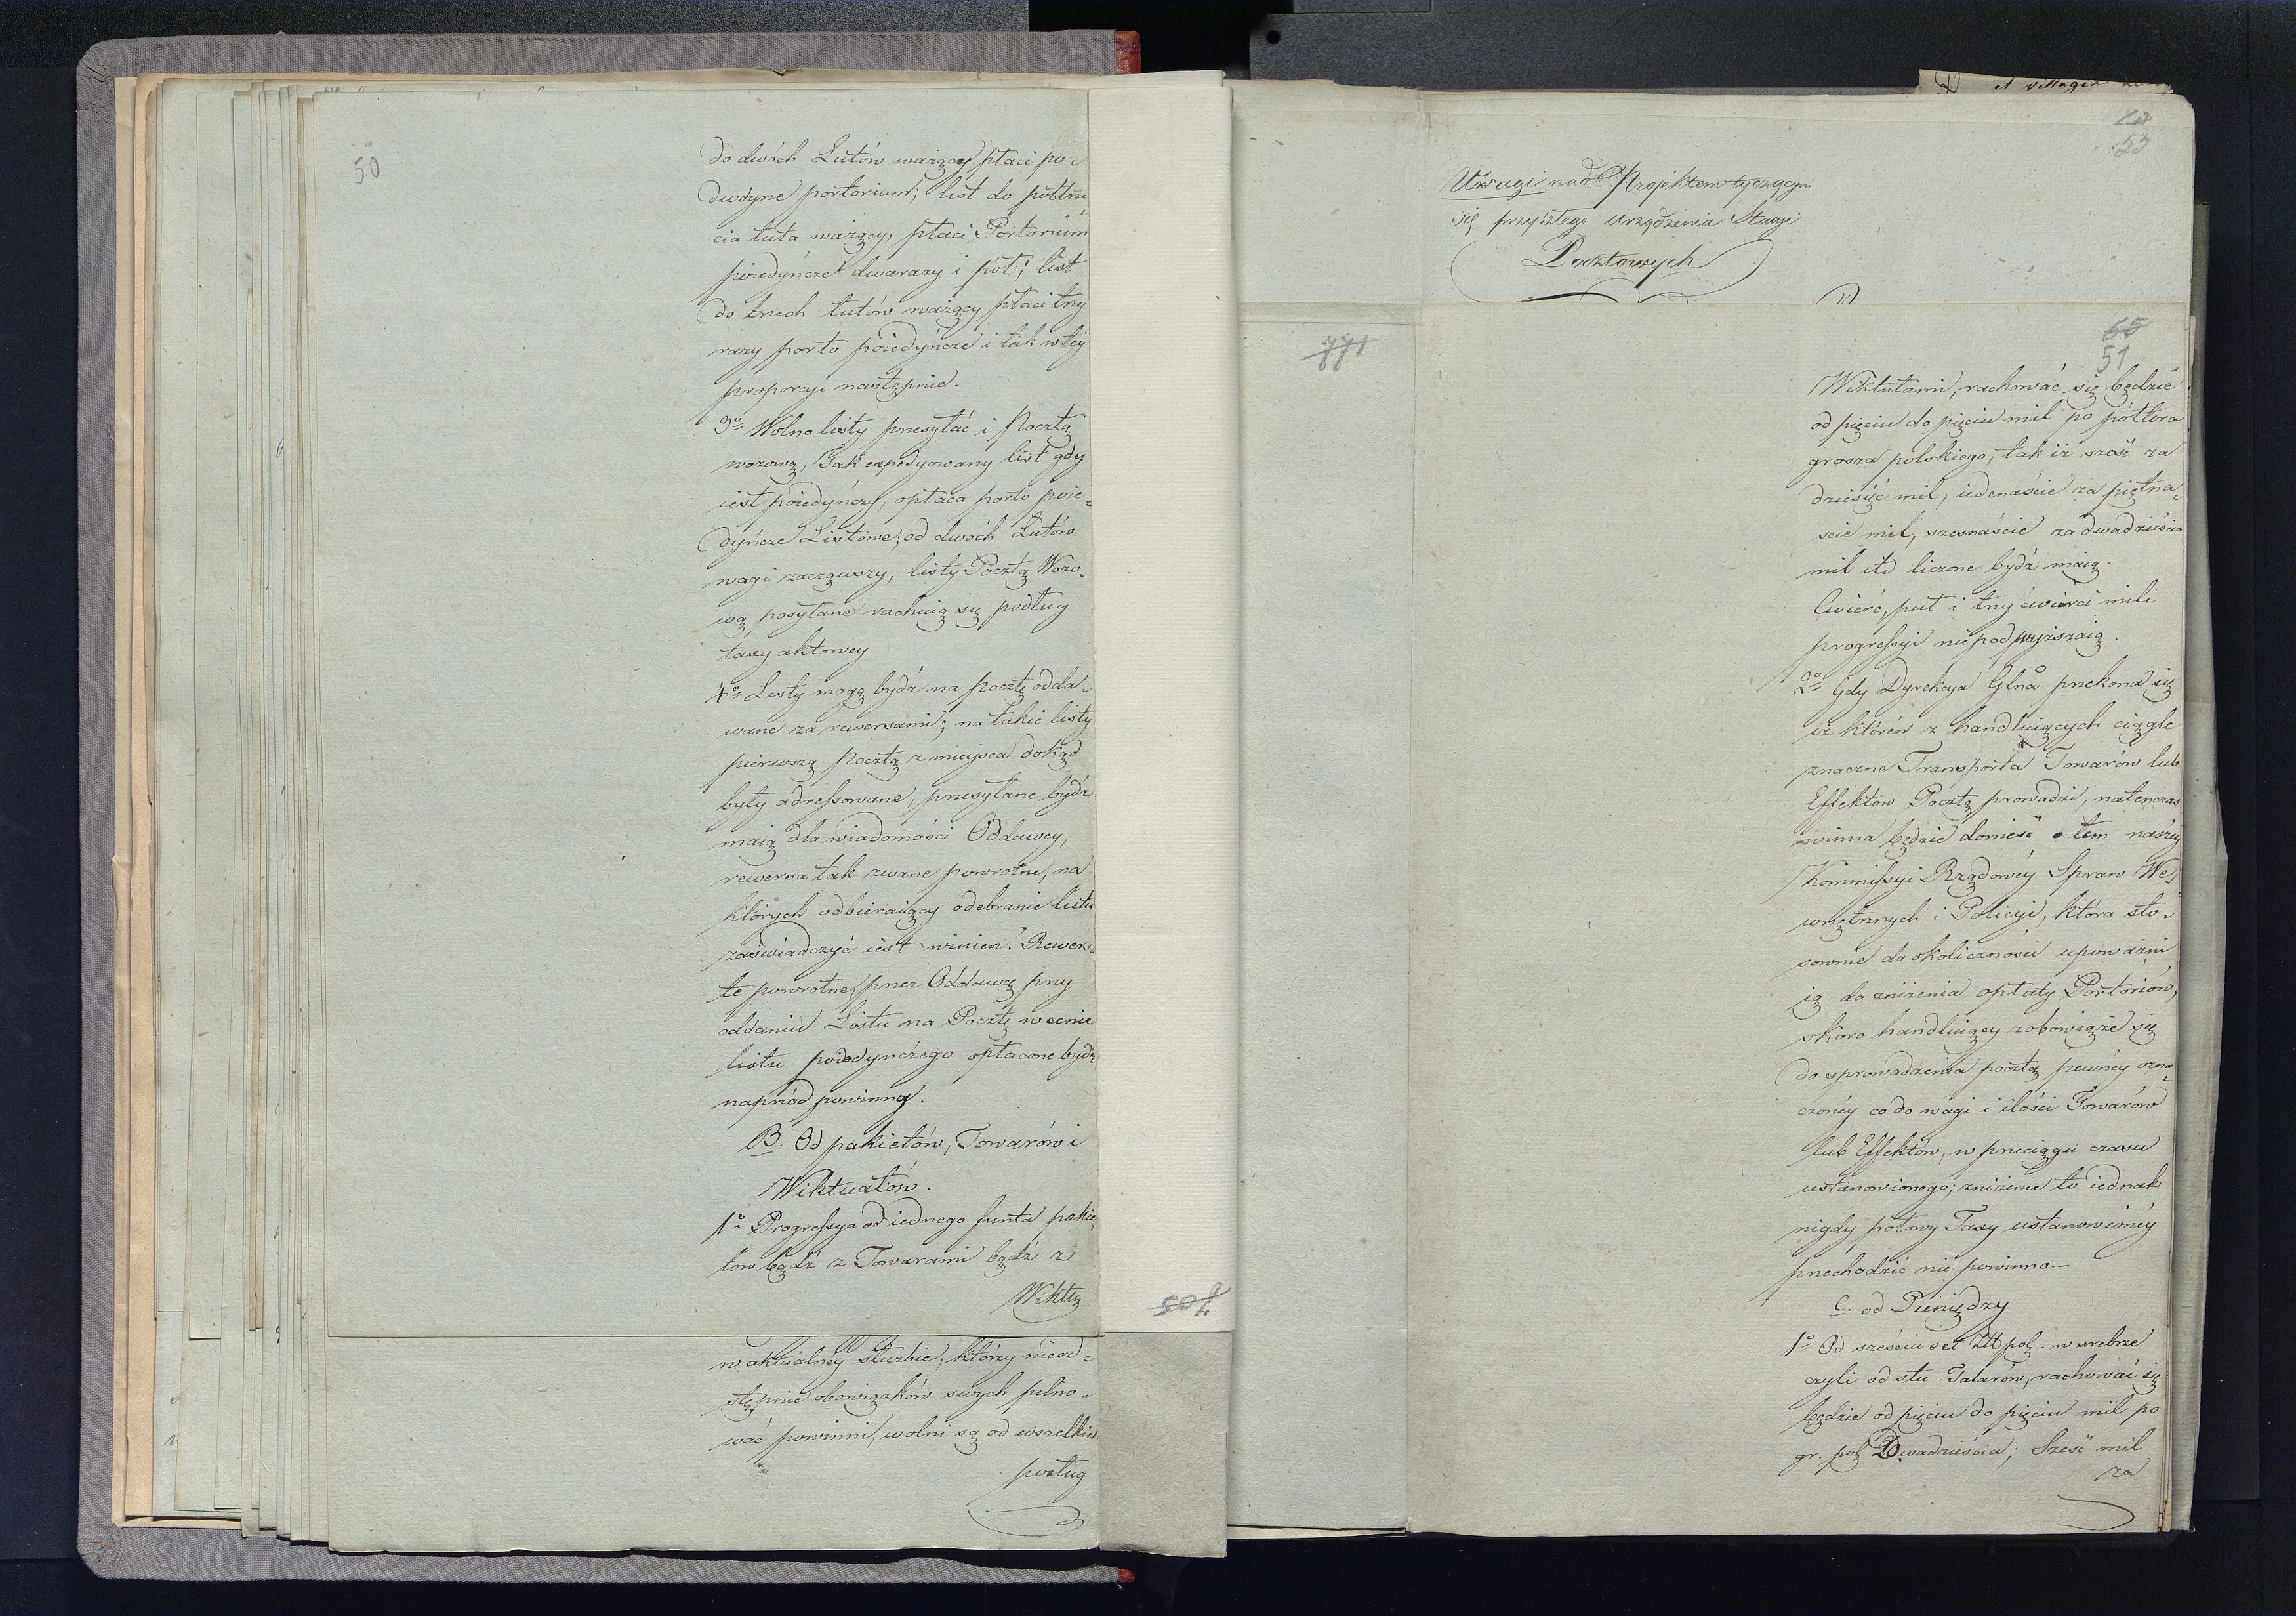 50
do dwóch Łutów ważący płaci po-
dwóyne portorium; list do półtrze-
cia łuta ważący, płaci Portorium
poiedyńcze dwarazy i pół; list
do trzech łutów ważący płaci trzy
razy porto poiedyńcze i tak w tey
proporcyi nastąpnie.
3o Wolno listy przesyłać i Pocztą
wozową, Jak expedyowany list gdy
iest poiedyńczy, opłaca porto poie-
dyńcze Listowe; od dwóch Łutów
wagi zacząwszy, listy Pocztą Wozo-
wą posyłane rachuią się podług
taxy aktowey
4o Listy mogą bydź na pocztę odda-
wane za rewersami; na takie listy
pierwszą Pocztą z mieysca dokąd
były adressowane, przesyłane bydź
maią dla wiadomości Oddawcy,
rewersa tak zwane powrotne, na
których odbieraiący odebranie listu
zaświadczyć iest winien. Rewersa
te powrotne, przez Oddawcę przy
oddaniu Listu na Pocztę w cenie
listu poiedynczego opłacone bydź
naprzód powinny.
B. Od pakietów, Towarów i
Wiktuałów.
1o Progressya od iednego funta pakie-
tow bądź z Towarami bądź z
Wiktu
w aktualney służbie, którzy nieod-
stępnie obowiązków swych pilno-
wać powinni, wolni są od wszelkich
posług
705
771
et villages
53
Uwagi nad Projektem tyczącym
się przyszłego urządzenia Stacyi
Pocztowych
65
51
Wiktułami, rachować się będzie
od pięciu do pięciu mil po półtora
grosza polskiego, tak iż sześć za
dziesięć mil, iedenaście za piętna-
scie mil, szesnaście za dwadzieścia
mil itd liczone bydź maią.
Cwierć, puł i trzy ćwierci mili
progressyi nie podwyższaią.
2o Gdy Dyrekcya Glna przekona się
iż któren z handluiących ciągle
znaczne Transporta Towarów lub
Effektow Pocztą prowadzi, natenczas
winna będzie donieść o tem naszey
Kommissyi Rządowéy Spraw We-
wnętrznych i Policyi, która sto-
sownie do okoliczności upoważni
ią do zniżenia opłaty Portoriów,
skoro handluiący zobowiąże się
do sprowadzenia pocztą pewnéy ozna-
czonéy co do wagi i ilości Towarów
lub Effektów, w przeciągu czasu
ustanowionego; zniżenie to iednak
nigdy połowy Taxy ustanowionéy
przechodzić nie powinno.-
C. od Pieniędzy
1o Od sześciuset Złł pol. w srebrze
czyli od stu Talarów, rachować się
będzie od pięciu do pięciu mil po
gr. pol Dwadzieścia; Sześć mil
za